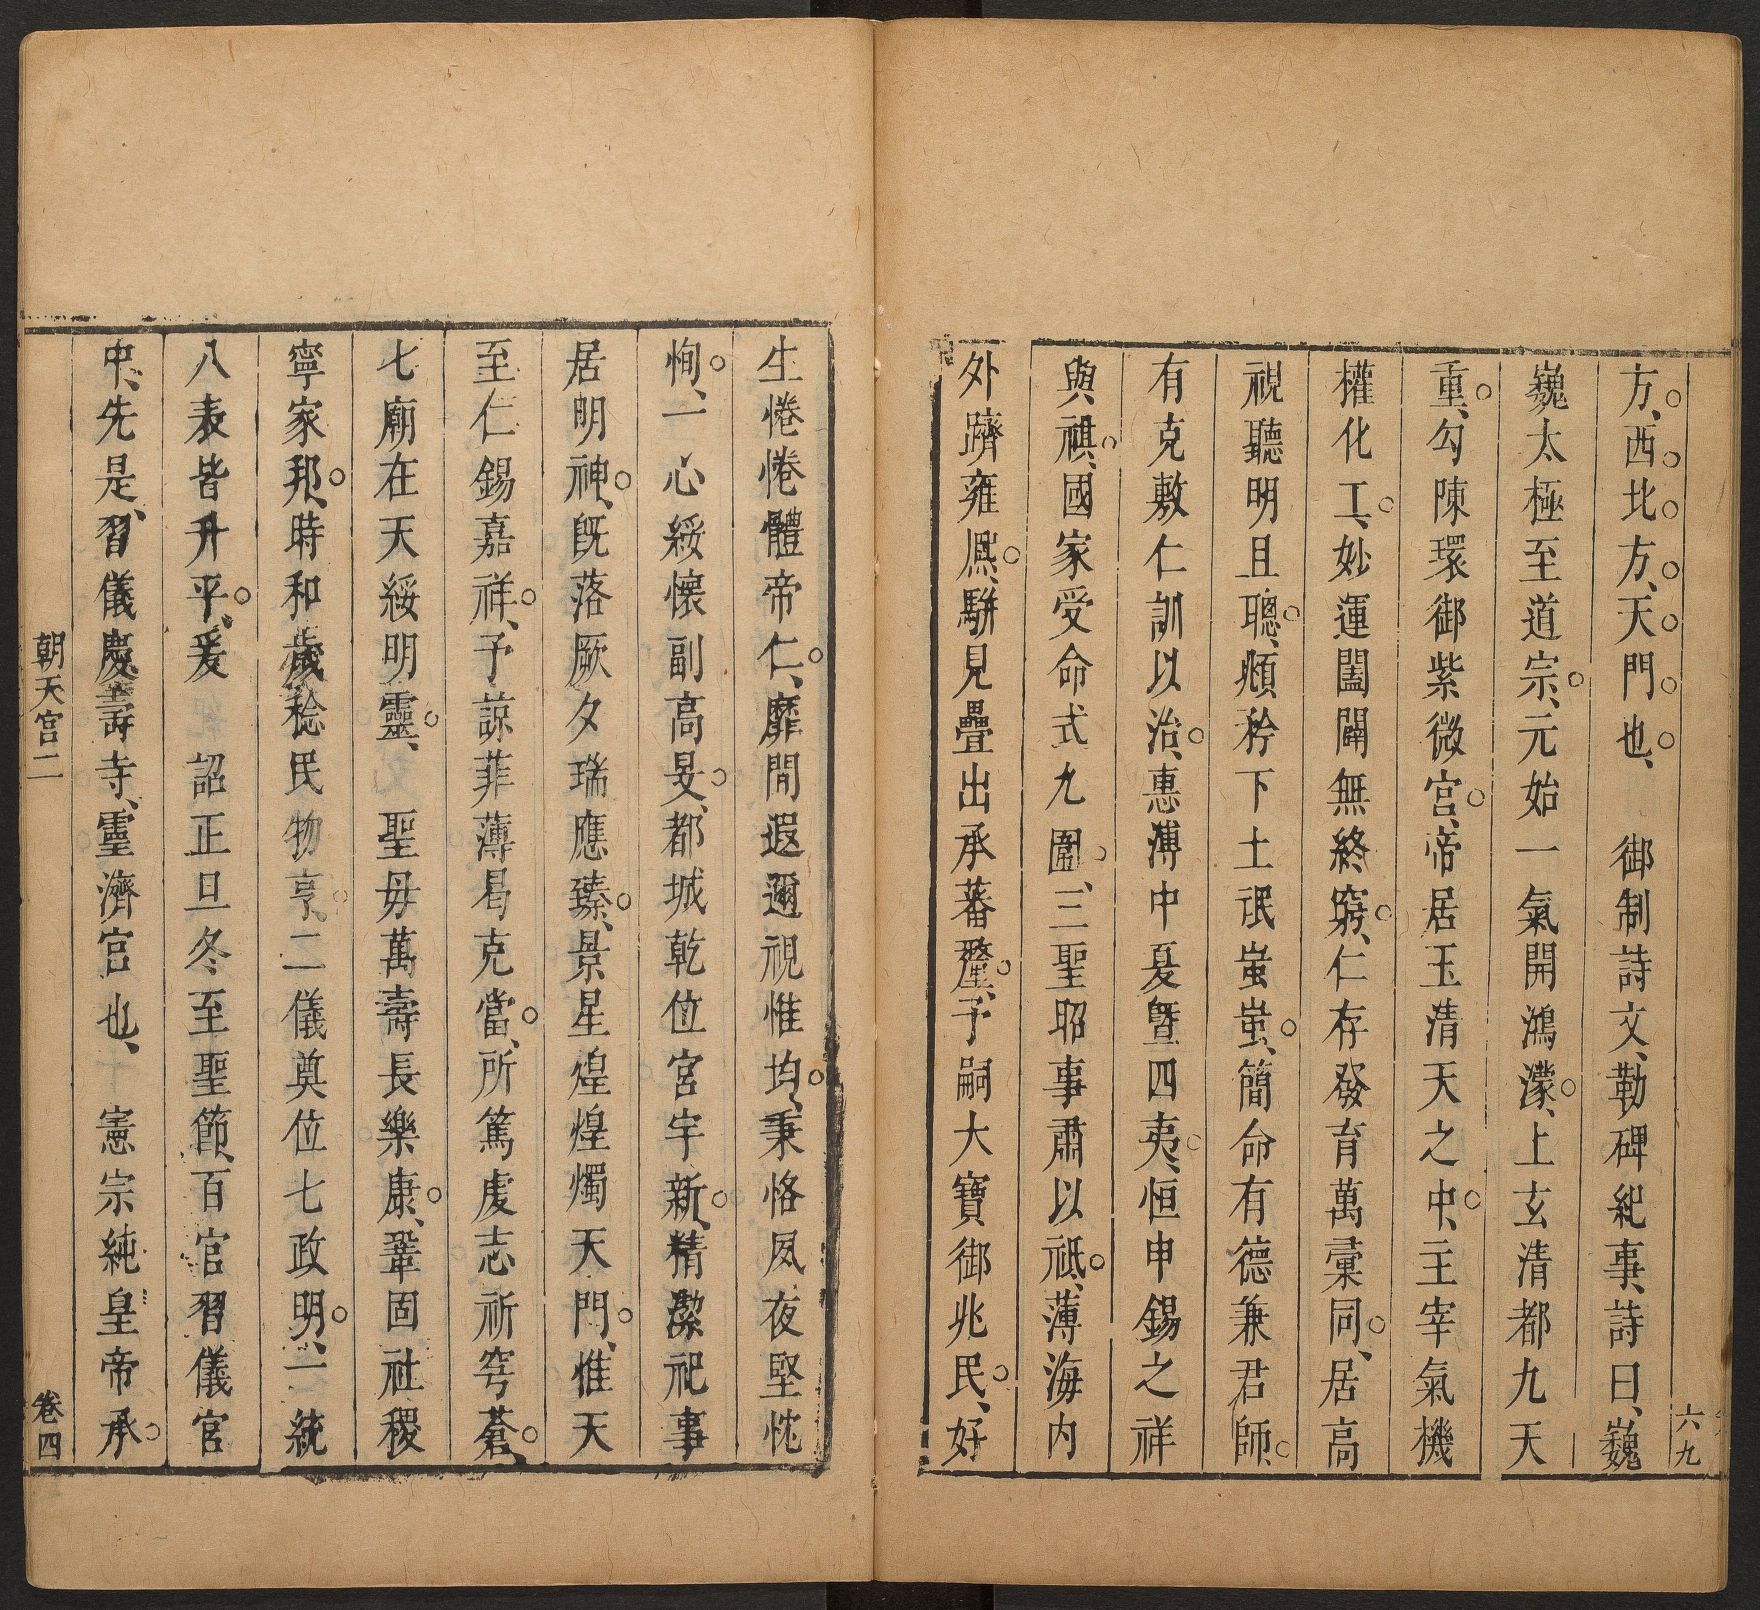 六九
方、西北方、天門也、御制詩文、勒碑紀事、詩曰、巍
巍太極至道宗、元始一氣開鴻濛、上玄清都九天
重、勾陳環御紫微宮、帝居玉清天之中、主宰氣機
權化工、妙運闔闢無終窮、仁存發育萬彙同、居高
視聽明且聰、頫矜下土氓蚩蚩、簡命有德兼君師、
有克敷仁訓以治、惠溥中夏曁四夷、恒申錫之祥
與祺、國家受命式九圍、三聖昭事肅以祗、薄海內
外躋雍熈、駢見疊出承蕃釐、予嗣大寶御兆民、好
生惓惓體帝仁、靡間遐邇視惟均、秉恪夙夜堅忱
恂、一心綏懷副高旻、都城乾位宮宇新、精潔祀事
居明神、旣落厥夕瑞應臻、景星煌煌燭天門、惟天
至仁錫嘉祥、予諒菲薄曷克當、所篤虔志祈穹蒼、
七廟在天綏明靈、聖母萬壽長樂康、鞏固社稷
寧家邦、時和歲稔民物亨、二儀奠位七政明、一統
八表皆升平、爰 詔正旦冬至聖節、百官習儀宮
中、先是、習儀慶壽寺、靈濟宮也、憲宗純皇帝承
朝天宮二
卷四